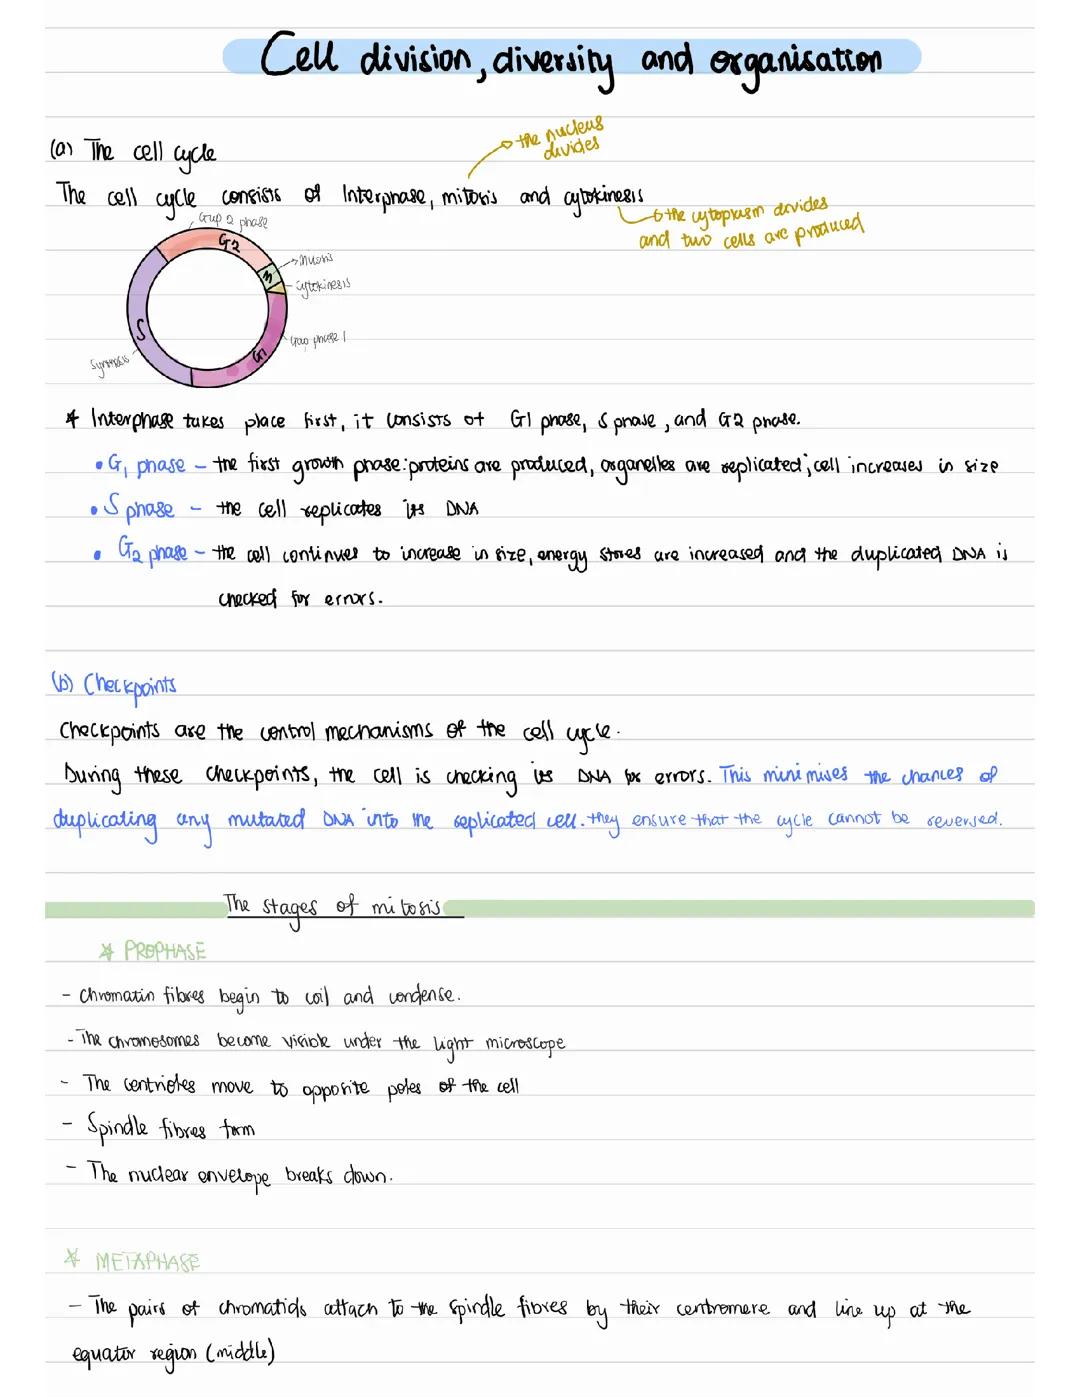 Cell division, diversity and organisation
(a) The cell cycle
→ the nucleus
divides
The cell cycle consists of Interphase, mitosis and cytokinesis
→ the cytoplasm divides
and two cells are produced
Gap 2 phase
G2
mitosis
M
cytokinesis
S
Gap phase 1
G1
Synthesis
* Interphase takes place first, it consists of G1 phase, S phase, and G2 phase.
• G₁ phase – the first growth phase: proteins are produced, organelles are replicated; cell increases in size
• S phase – the cell replicates its DNA
• G₂ phase – the cell continues to increase in size, energy stores are increased and the duplicated DNA is
checked for errors.
(b) Checkpoints
Checkpoints are the control mechanisms of the cell cycle.
During these checkpoints, the cell is checking its DNA for errors. This minimises the chances of
duplicating any mutated DNA into the replicated cell. they ensure that the cycle cannot be reversed.
The stages of mitosis
* PROPHASE
- Chromatin fibres begin to coil and condense.
- The chromosomes become visible under the light microscope
- The centrioles move to opposite poles of the cell
- Spindle fibres form
- The nuclear envelope breaks down.
* METAPHASE
- The pairs of chromatids attach to the spindle fibres by their centromere and line up at the
equator region (middle)